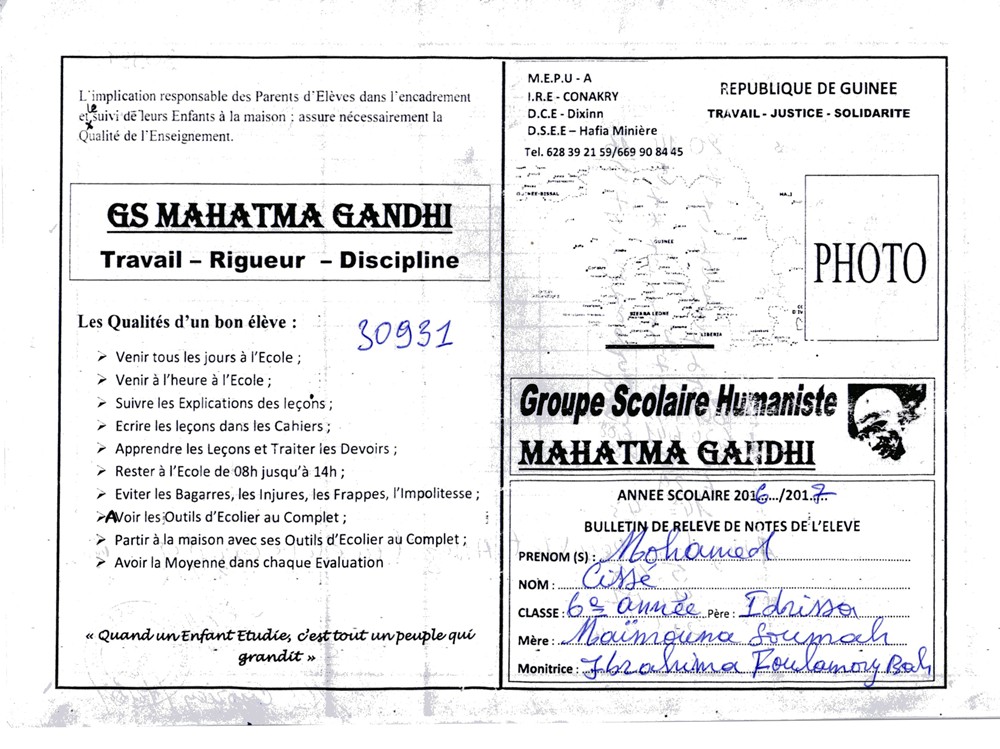 L'implication responsable des Parents d'Elèves dans l'encadrement
et le suivi de leurs Enfants à la maison ; assure nécessairement la
Qualité de l'Enseignement.
GS MAHATMA GANDHI
Travail – Rigueur – Discipline
Les Qualités d'un bon élève :
30931
➢ Venir tous les jours à l'Ecole ;
➢ Venir à l'heure à l'Ecole ;
➢ Suivre les Explications des leçons ;
➢ Ecrire les leçons dans les Cahiers ;
➢ Apprendre les Leçons et Traiter les Devoirs ;
➢ Rester à l'Ecole de 08h jusqu'à 14h ;
➢ Eviter les Bagarres, les Injures, les Frappes, l'Impolitesse ;
➢ AVoir les Outils d'Ecolier au Complet ;
➢ Partir à la maison avec ses Outils d'Ecolier au Complet ;
➢ Avoir la Moyenne dans chaque Evaluation
« Quand un Enfant Etudie, c'est tout un peuple qui
grandit »
M.E.P.U - A
I.R.E - CONAKRY
D.C.E - Dixinn
D.S.E.E – Hafia Minière
Tel. 628 39 21 59/669 90 84 45
REPUBLIQUE DE GUINEE
TRAVAIL - JUSTICE - SOLIDARITE
GUINÉE
SIERRA LEONE
LIBERIA
PHOTO
Groupe Scolaire Humaniste
MAHATMA GANDHI
ANNEE SCOLAIRE 2016.../2017
BULLETIN DE RELEVE DE NOTES DE L'ELEVE
PRENOM (S) : Mohamed
NOM : Cissé
CLASSE : 6e année Père : Idrissa
Mère : Maïmouna Soumah
Monitrice : Ibrahima Foulamory Bah